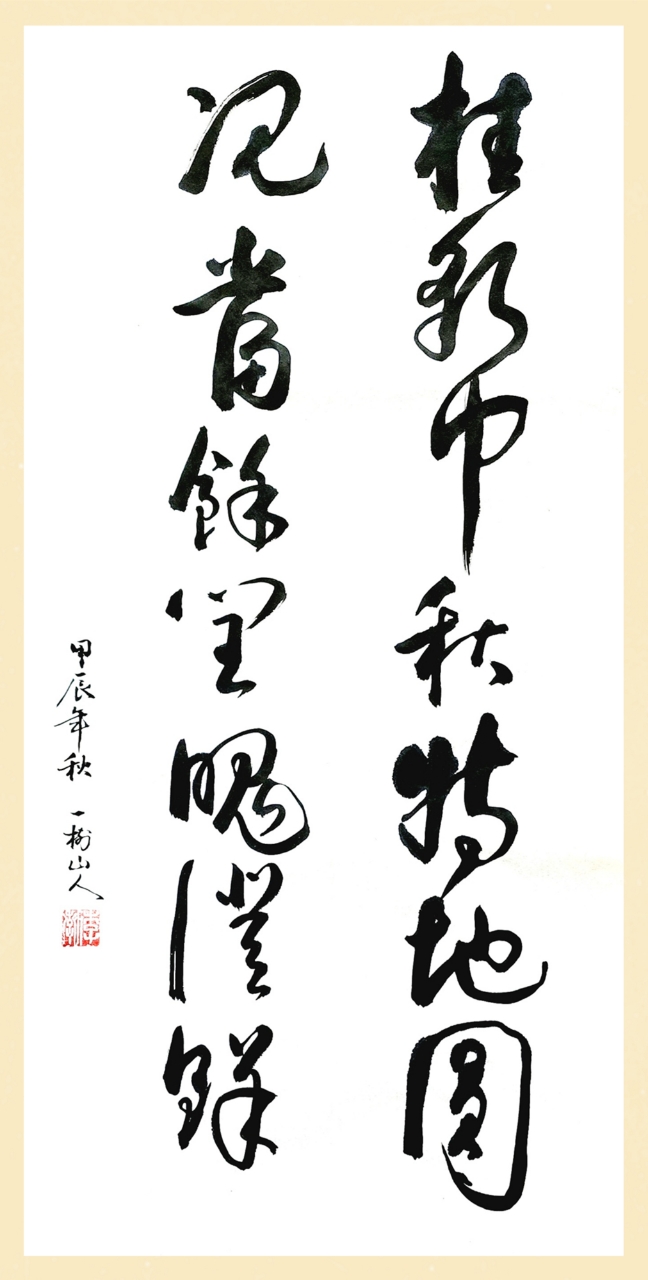 桂影中秋特地圓
況當餘閏魄澄鮮
甲辰年秋 一樹山人